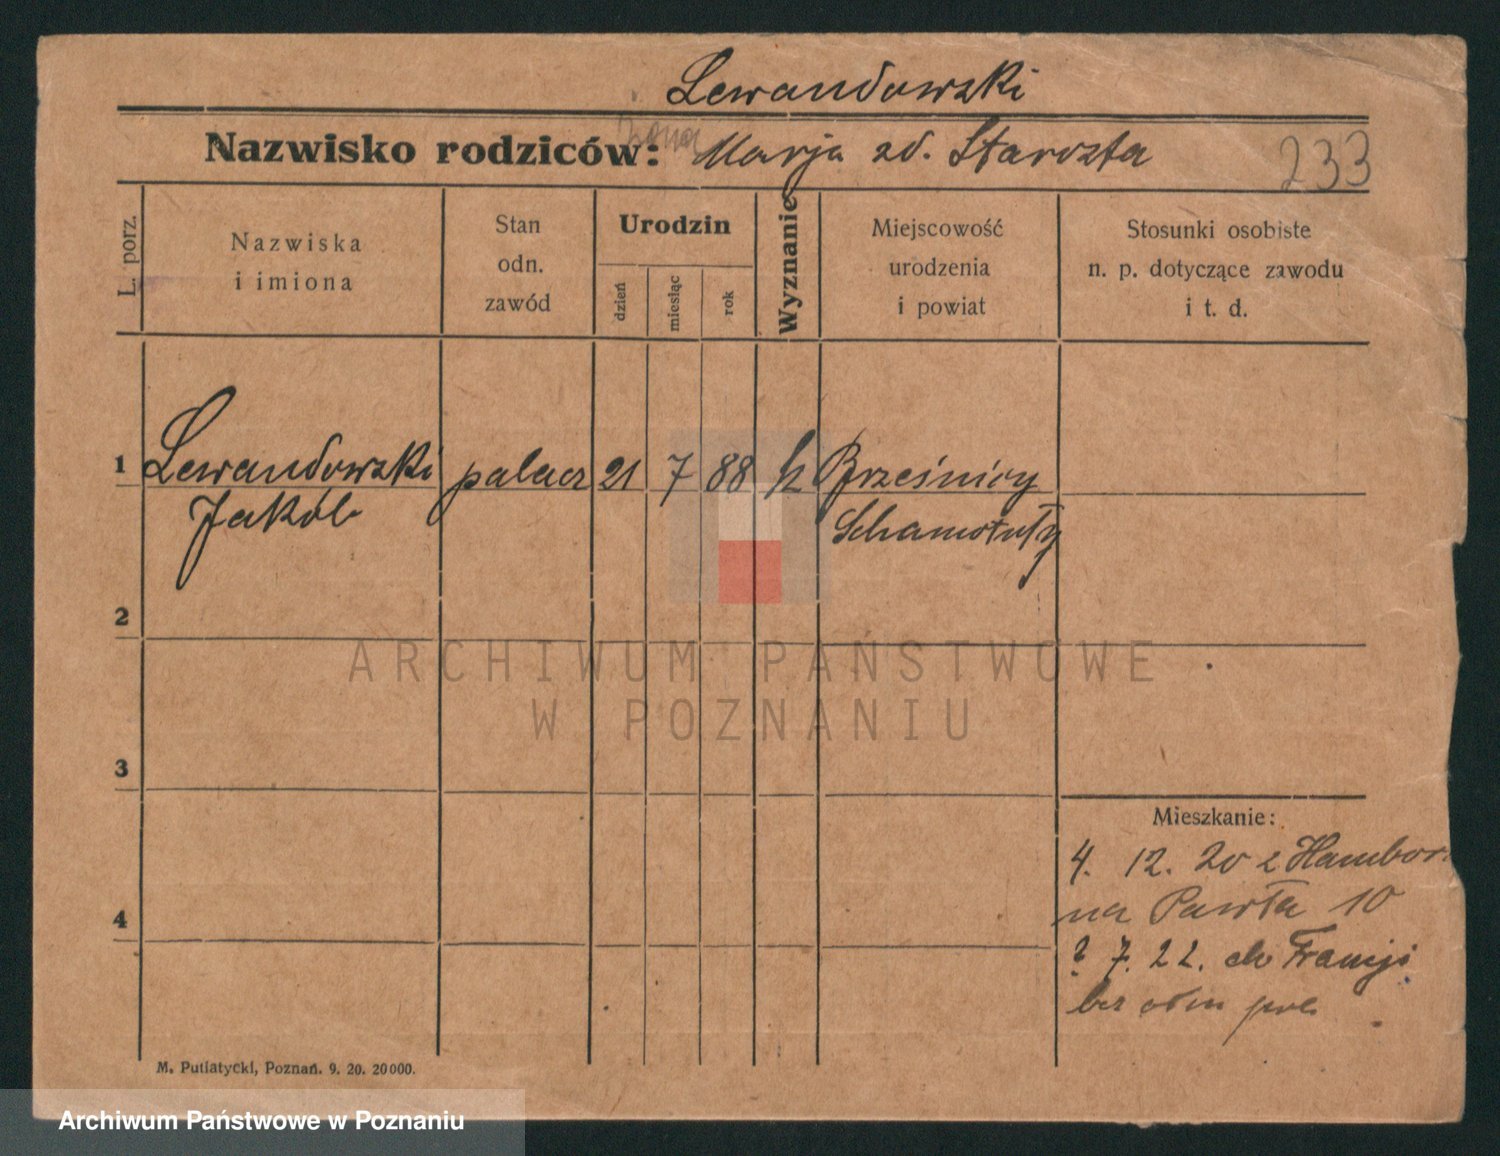 Lewandowski
Nazwisko rodziców: żona Marja zd. Starosta 233
L. porz.
Nazwiska
i imiona
Stan
odn.
zawód
Urodzin
dzień
miesiąc
rok
Wyznanie
Miejscowość
urodzenia
i powiat
Stosunki osobiste
n. p. dotyczące zawodu
i t. d.
1 Lewandowski palacz 21 7 88 k Brześnicy
Jakób Schamotuły
2
3
4
Mieszkanie:
4. 12. 20 z Hambor
na Pawła 10
? 7. 22. do Francji
bez
M. Putiatycki, Poznań. 9. 20. 20000.
ARCHIWUM PAŃSTWOWE
W POZNANIU
Archiwum Państwowe w Poznaniu